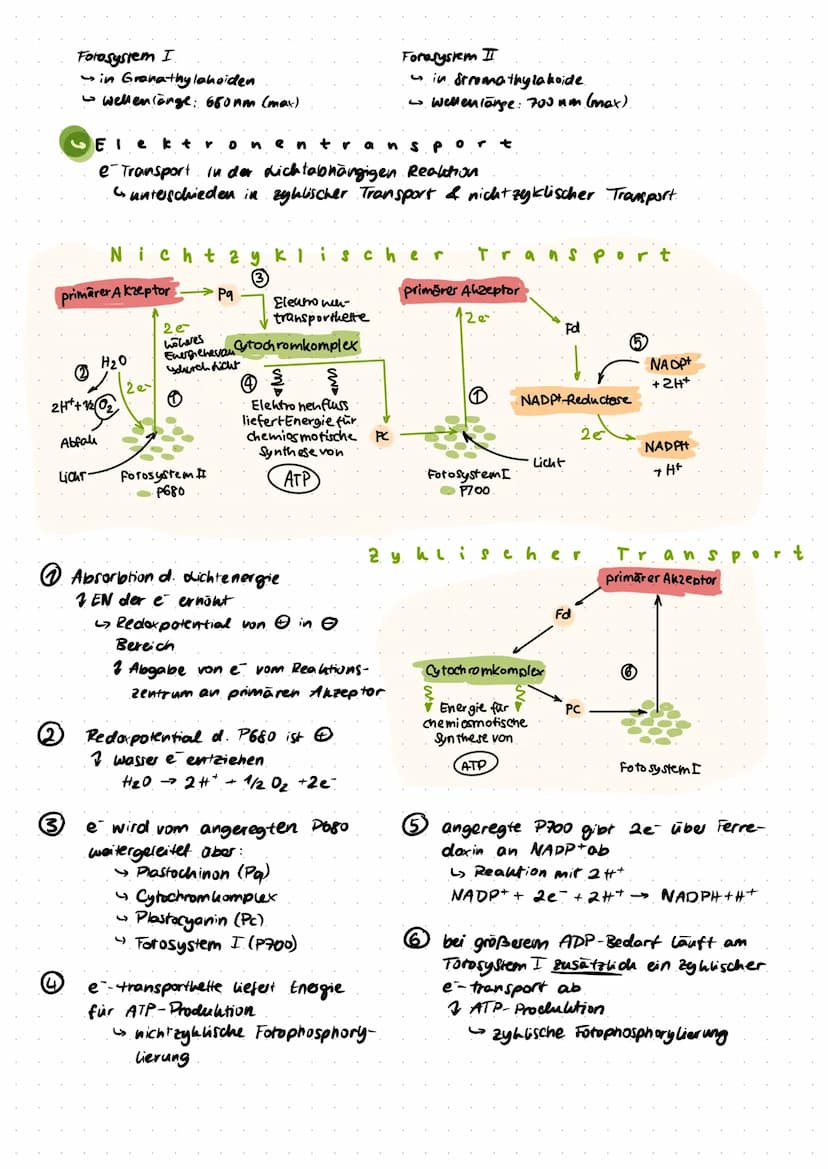 Fotosystem I
↳ in Granathylakoiden
↳ Wellenlänge: 680 nm (max)
Fotosystem II
↳ in Stromathylakoide
↳ Wellenlänge: 700 nm (max)
↳ Elektronentransport
e⁻ Transport in der Lichtabhängigen Reaktion
↳ unterschieden in zyklischer Transport & nichtzyklischer Transport
Nichtzyklischer Transport
primärer Akzeptor
Pq
③
Elektronen-
transportkette
2e⁻
höheres
Energieniveau
durch Licht
Cytochromkomplex
② H₂O
2e⁻
2H⁺ + ½ O₂
Abfall
Licht
①
Fotosystem II
P680
④
Elektronenfluss
liefert Energie für
chemiosmotische
Synthese von
ATP
PC
primärer Akzeptor
2e⁻
①
Licht
Fotosystem I
P700
Fd
⑤
NADP⁺
+ 2H⁺
NADP⁺-Reductase
2e⁻
NADPH
+ H⁺
Zyklischer Transport
primärer Akzeptor
Fd
Cytochromkomplex
⑥
Energie für
chemiosmotische
Synthese von
ATP
PC
Fotosystem I
① Absorbtion d. Lichtenergie
↴ EN der e⁻ erhöht
↳ Redoxpotential von ⊕ in ⊖
Bereich
↴ Abgabe von e⁻ vom Reaktions-
zentrum an primären Akzeptor
② Redoxpotential d. P680 ist ⊕
↴ Wasser e⁻ entziehen
H₂O → 2H⁺ + 1/2 O₂ + 2e⁻
③ e⁻ wird vom angeregten P680
weitergeleitet über:
↳ Plastochinon (Pq)
↳ Cytochromkomplex
↳ Plastocyanin (Pc)
↳ Fotosystem I (P700)
④ e⁻-transportkette liefert Energie
für ATP-Produktion
↳ nichtzyklische Fotophosphory-
lierung
⑤ angeregte P700 gibt 2e⁻ über Ferre-
doxin an NADP⁺ ab
↳ Reaktion mit 2H⁺
NADP⁺ + 2e⁻ + 2H⁺ → NADPH + H⁺
⑥ bei größerem ADP-Bedarf läuft am
Fotosystem I zusätzlich ein zyklischer
e⁻-transport ab
↴ ATP-Produktion
↳ zyklische Fotophosphorylierung